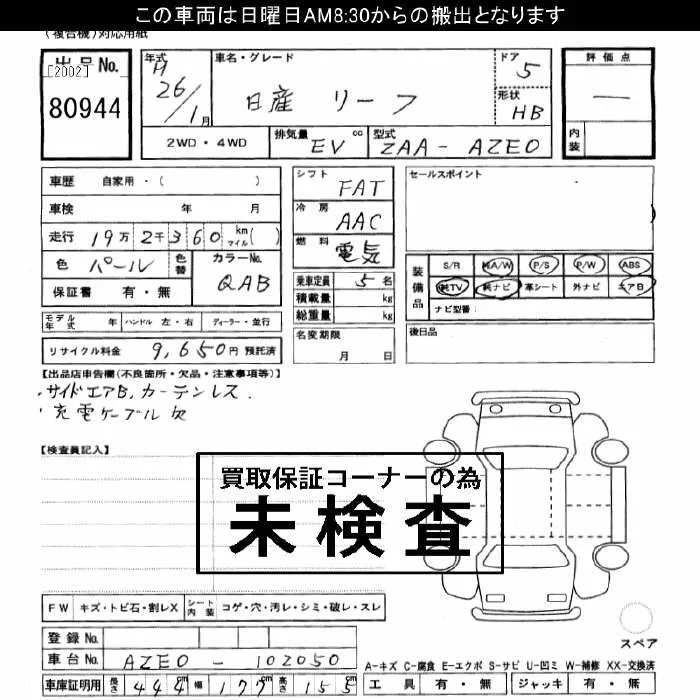 この車両は日曜日AM8:30からの搬出となります
(複合機)対応用紙
出品No.
[2002]
80944
年式 H 26/1月
車名・グレード
日産 リーフ
ドア 5
形状 HB
評価点
―
内装
2WD・4WD
排気量 EV cc
型式 ZAA-AZE0
車歴 自家用・( )
車検 年 月
走行 19万2千360 km マイル( )
色 パール 色替
カラーNo. QAB
保証書 有・無
シフト FAT
冷房 AAC
燃料 電気
乗車定員 5名
積載量 kg
総重量 kg
名変期限
月 日
セールスポイント
装備品
S/R 純A/W P/S P/W ABS
純TV 純ナビ 革シート 外ナビ エアB
ナビ型番:
後日品
モデル年式 年 ハンドル 左・右 ディーラー・並行
リサイクル料金 9,650円 預託済
【出品店車告欄(不良箇所・欠品・注意事項等)】
サイドエアB, カーテンレス.
充電ケーブル欠
【検査員記入】
買取保証コーナーの為
未検査
FW キズ・トビ石・割レX シート内装 コゲ・穴・汚レ・シミ・破レ・スレ
スペア
登録No.
車台No. AZE0-102050
A-キズ C-腐食 E-エクボ S-サビ U-凹ミ W-補修 XX-交換済
車庫証明用 長さ 444cm 幅 177cm 高さ 155cm
工具 有・無 ジャッキ 有・無